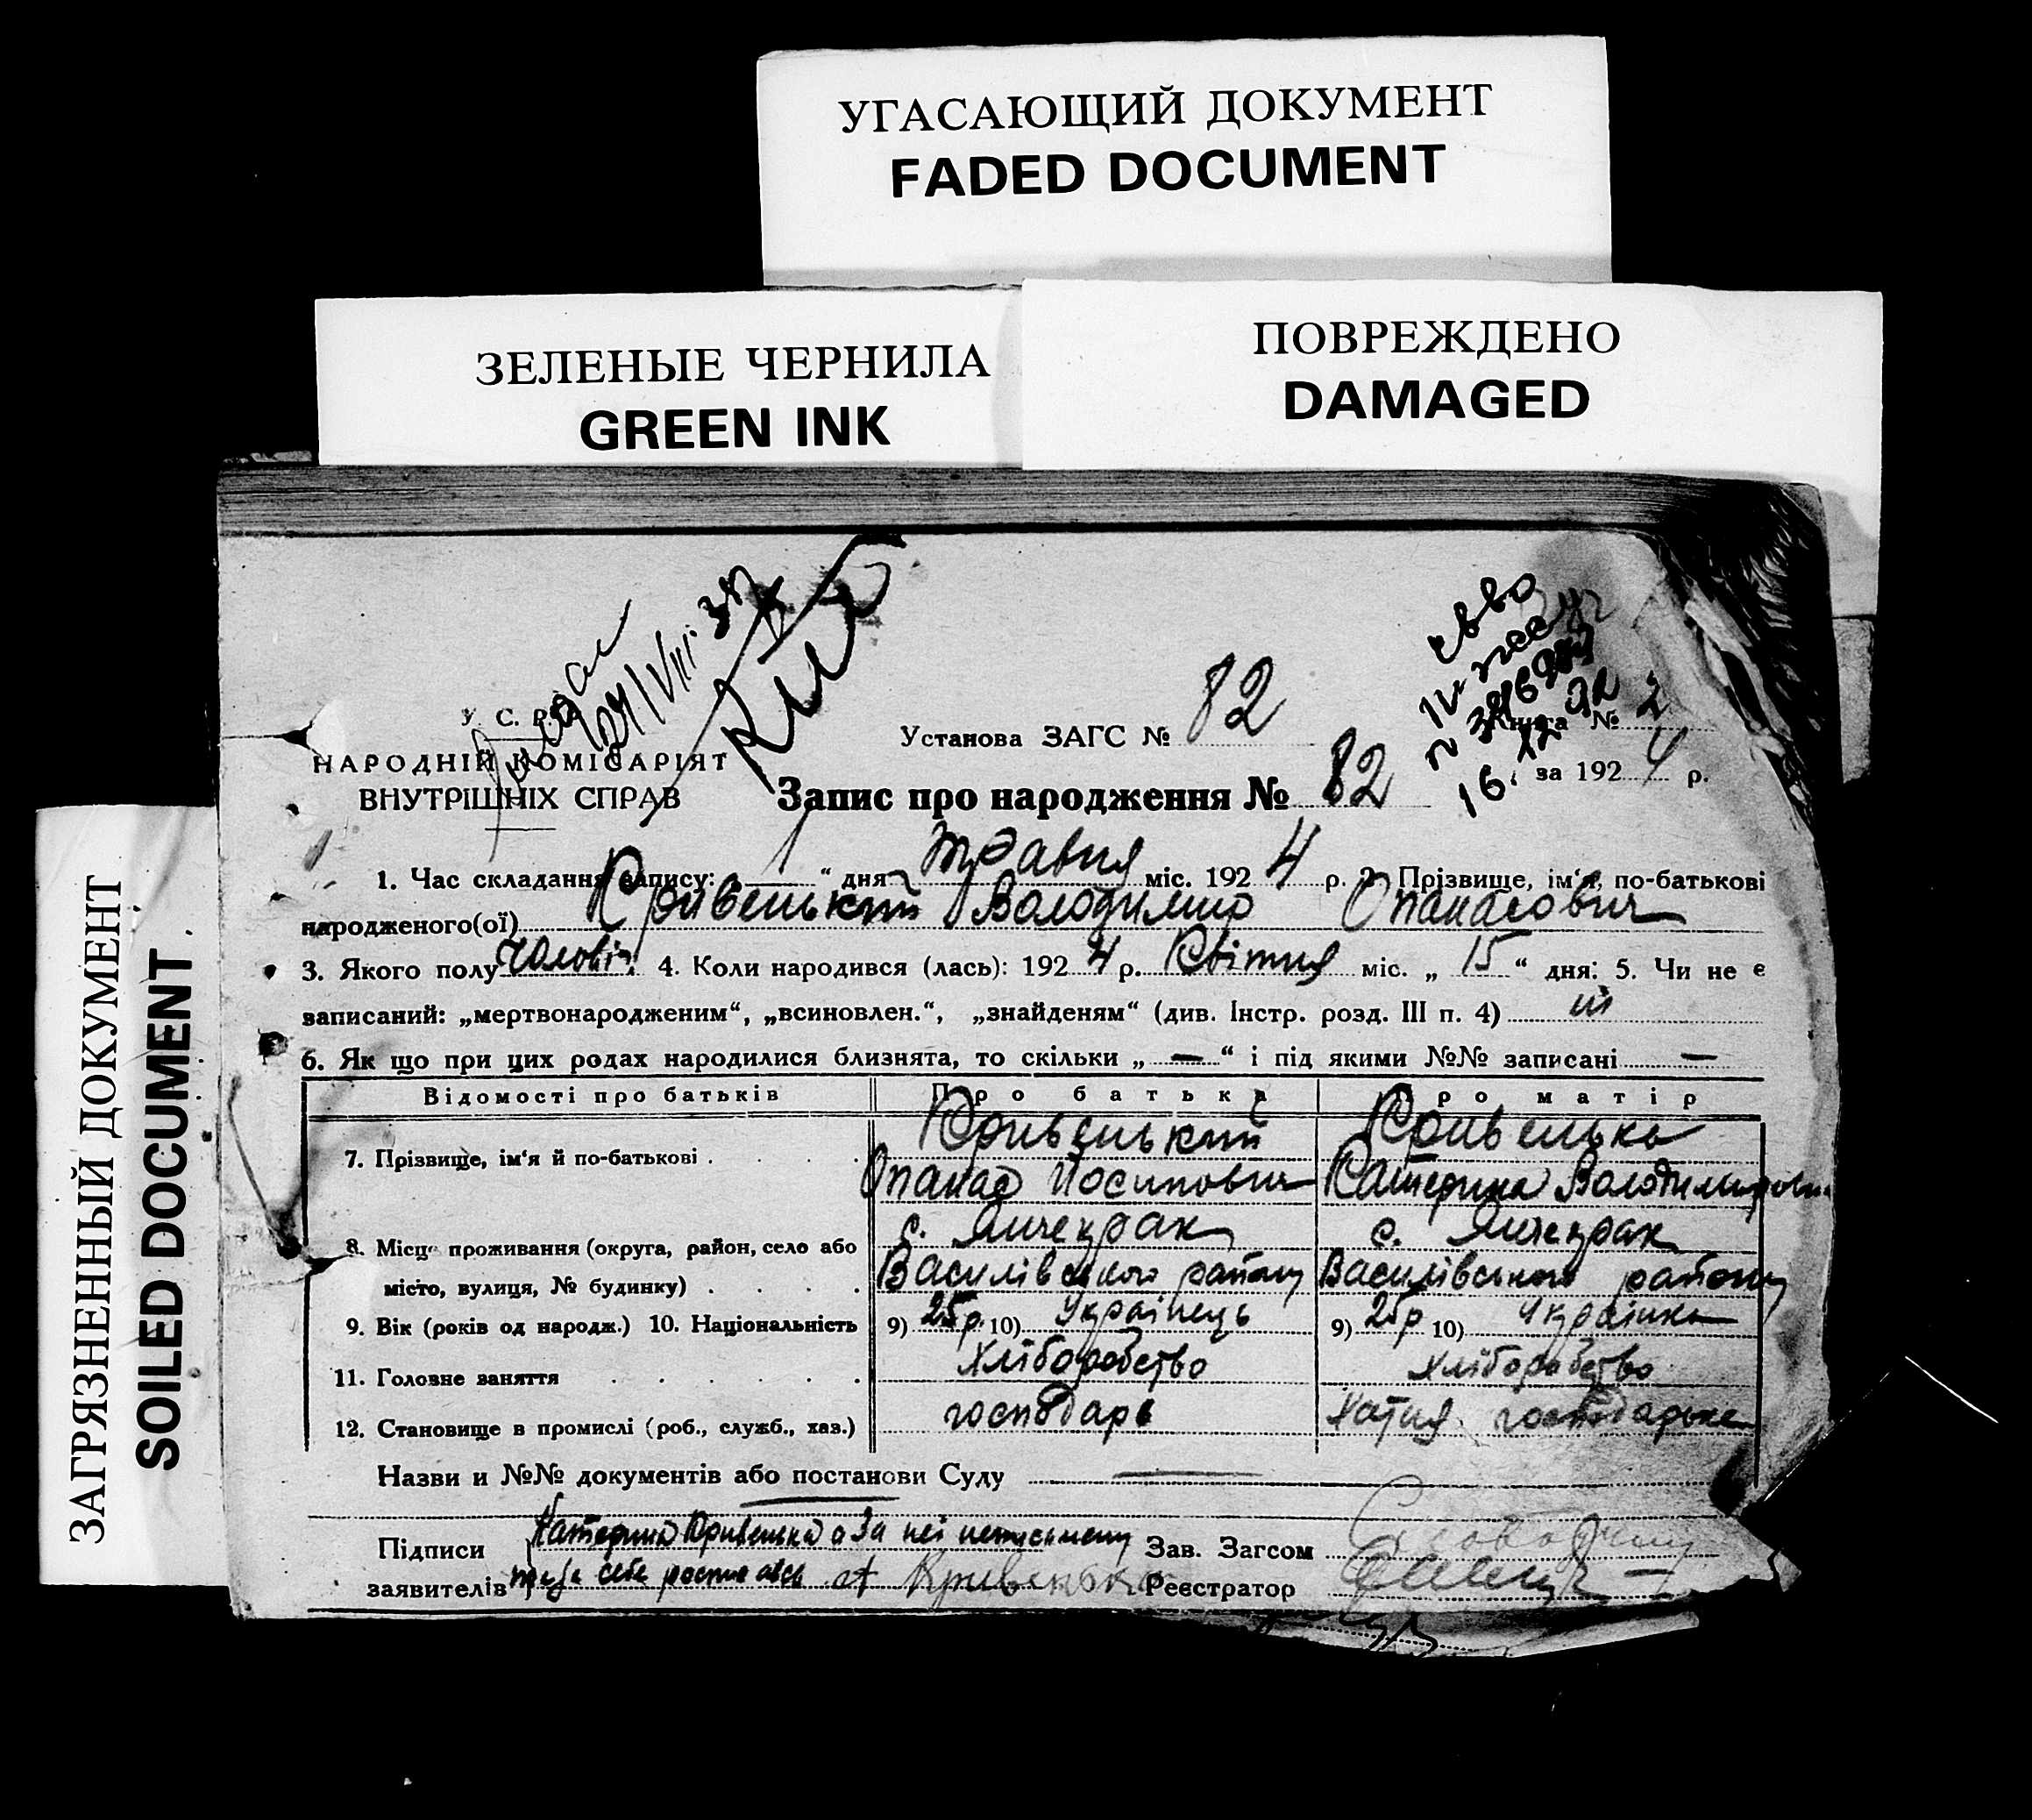 УГАСАЮЩИЙ ДОКУМЕНТ
FADED DOCUMENT
ЗЕЛЕНЫЕ ЧЕРНИЛА
GREEN INK
ПОВРЕЖДЕНО
DAMAGED
ЗАГРЯЗНЕННЫЙ ДОКУМЕНТ
SOILED DOCUMENT
У. С. Р. Р.
НАРОДНІЙ КОМІСАРІЯТ
ВНУТРІШНІХ СПРАВ
Установа ЗАГС № 82
Книга № 2
за 1924 р.
Запис про народження № 82
1. Час складання запису: „ 1 “ дня травня міс. 1924 р. 2. Прізвище, ім‘я, по-батькові
народженого(ої) Кривенький Володимир Опанасович
3. Якого полу чоловіч. 4. Коли народився (лась): 1924 р. Квітня міс. „ 15 “ дня: 5. Чи не є
записаний: „мертвонародженим“, „всиновлен.“, „знайденям“ (див. Інстр. розд. III п. 4) ні
6. Як що при цих родах народилися близнята, то скільки „ — “ і під якими №№ записані —
Відомості про батьків Про батька Про матір
7. Прізвище, ім‘я й по-батькові Кривенький Кривенька
Опанас Йосипович Катерина Володимировна
8. Місце проживання (округа, район, село або с. Янчекрак с. Янчекрак
місто, вулиця, № будинку) Василівського району Василівського району
9. Вік (років од народж.) 10. Національність 9) 25 р. 10) Українець 9) 25 р 10) Українка
11. Головне заняття Хліборобство Хліборобство
12. Становище в промислі (роб., служб., хаз.) господарь Хатня господарька
Назви и №№ документів або постанови Суду —
Підписи Катерина Кривенька а За неї неписьмену Зав. Загсом
заявителів Кривенька Реєстратор